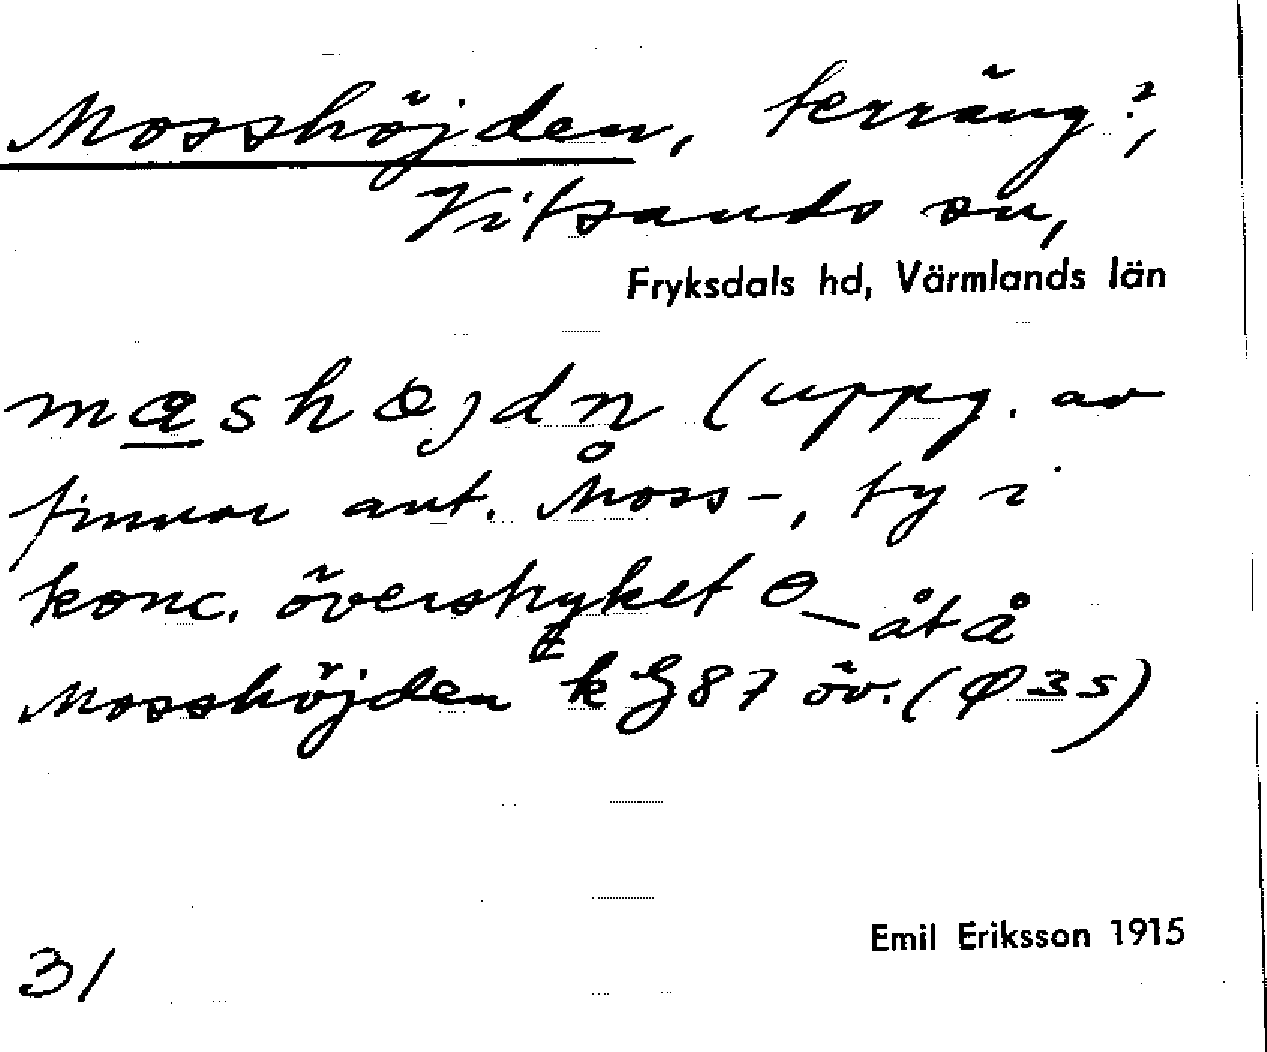 Mosshöjden, terräng?,
Vitsands sn,
Fryksdals hd, Värmlands län
mashøjdn (uppg. av
finnar ant. Måss-, ty i
konc. överstryket
Mosshöjden k G 87 öv. (Ø 35)
Emil Eriksson 1915
31